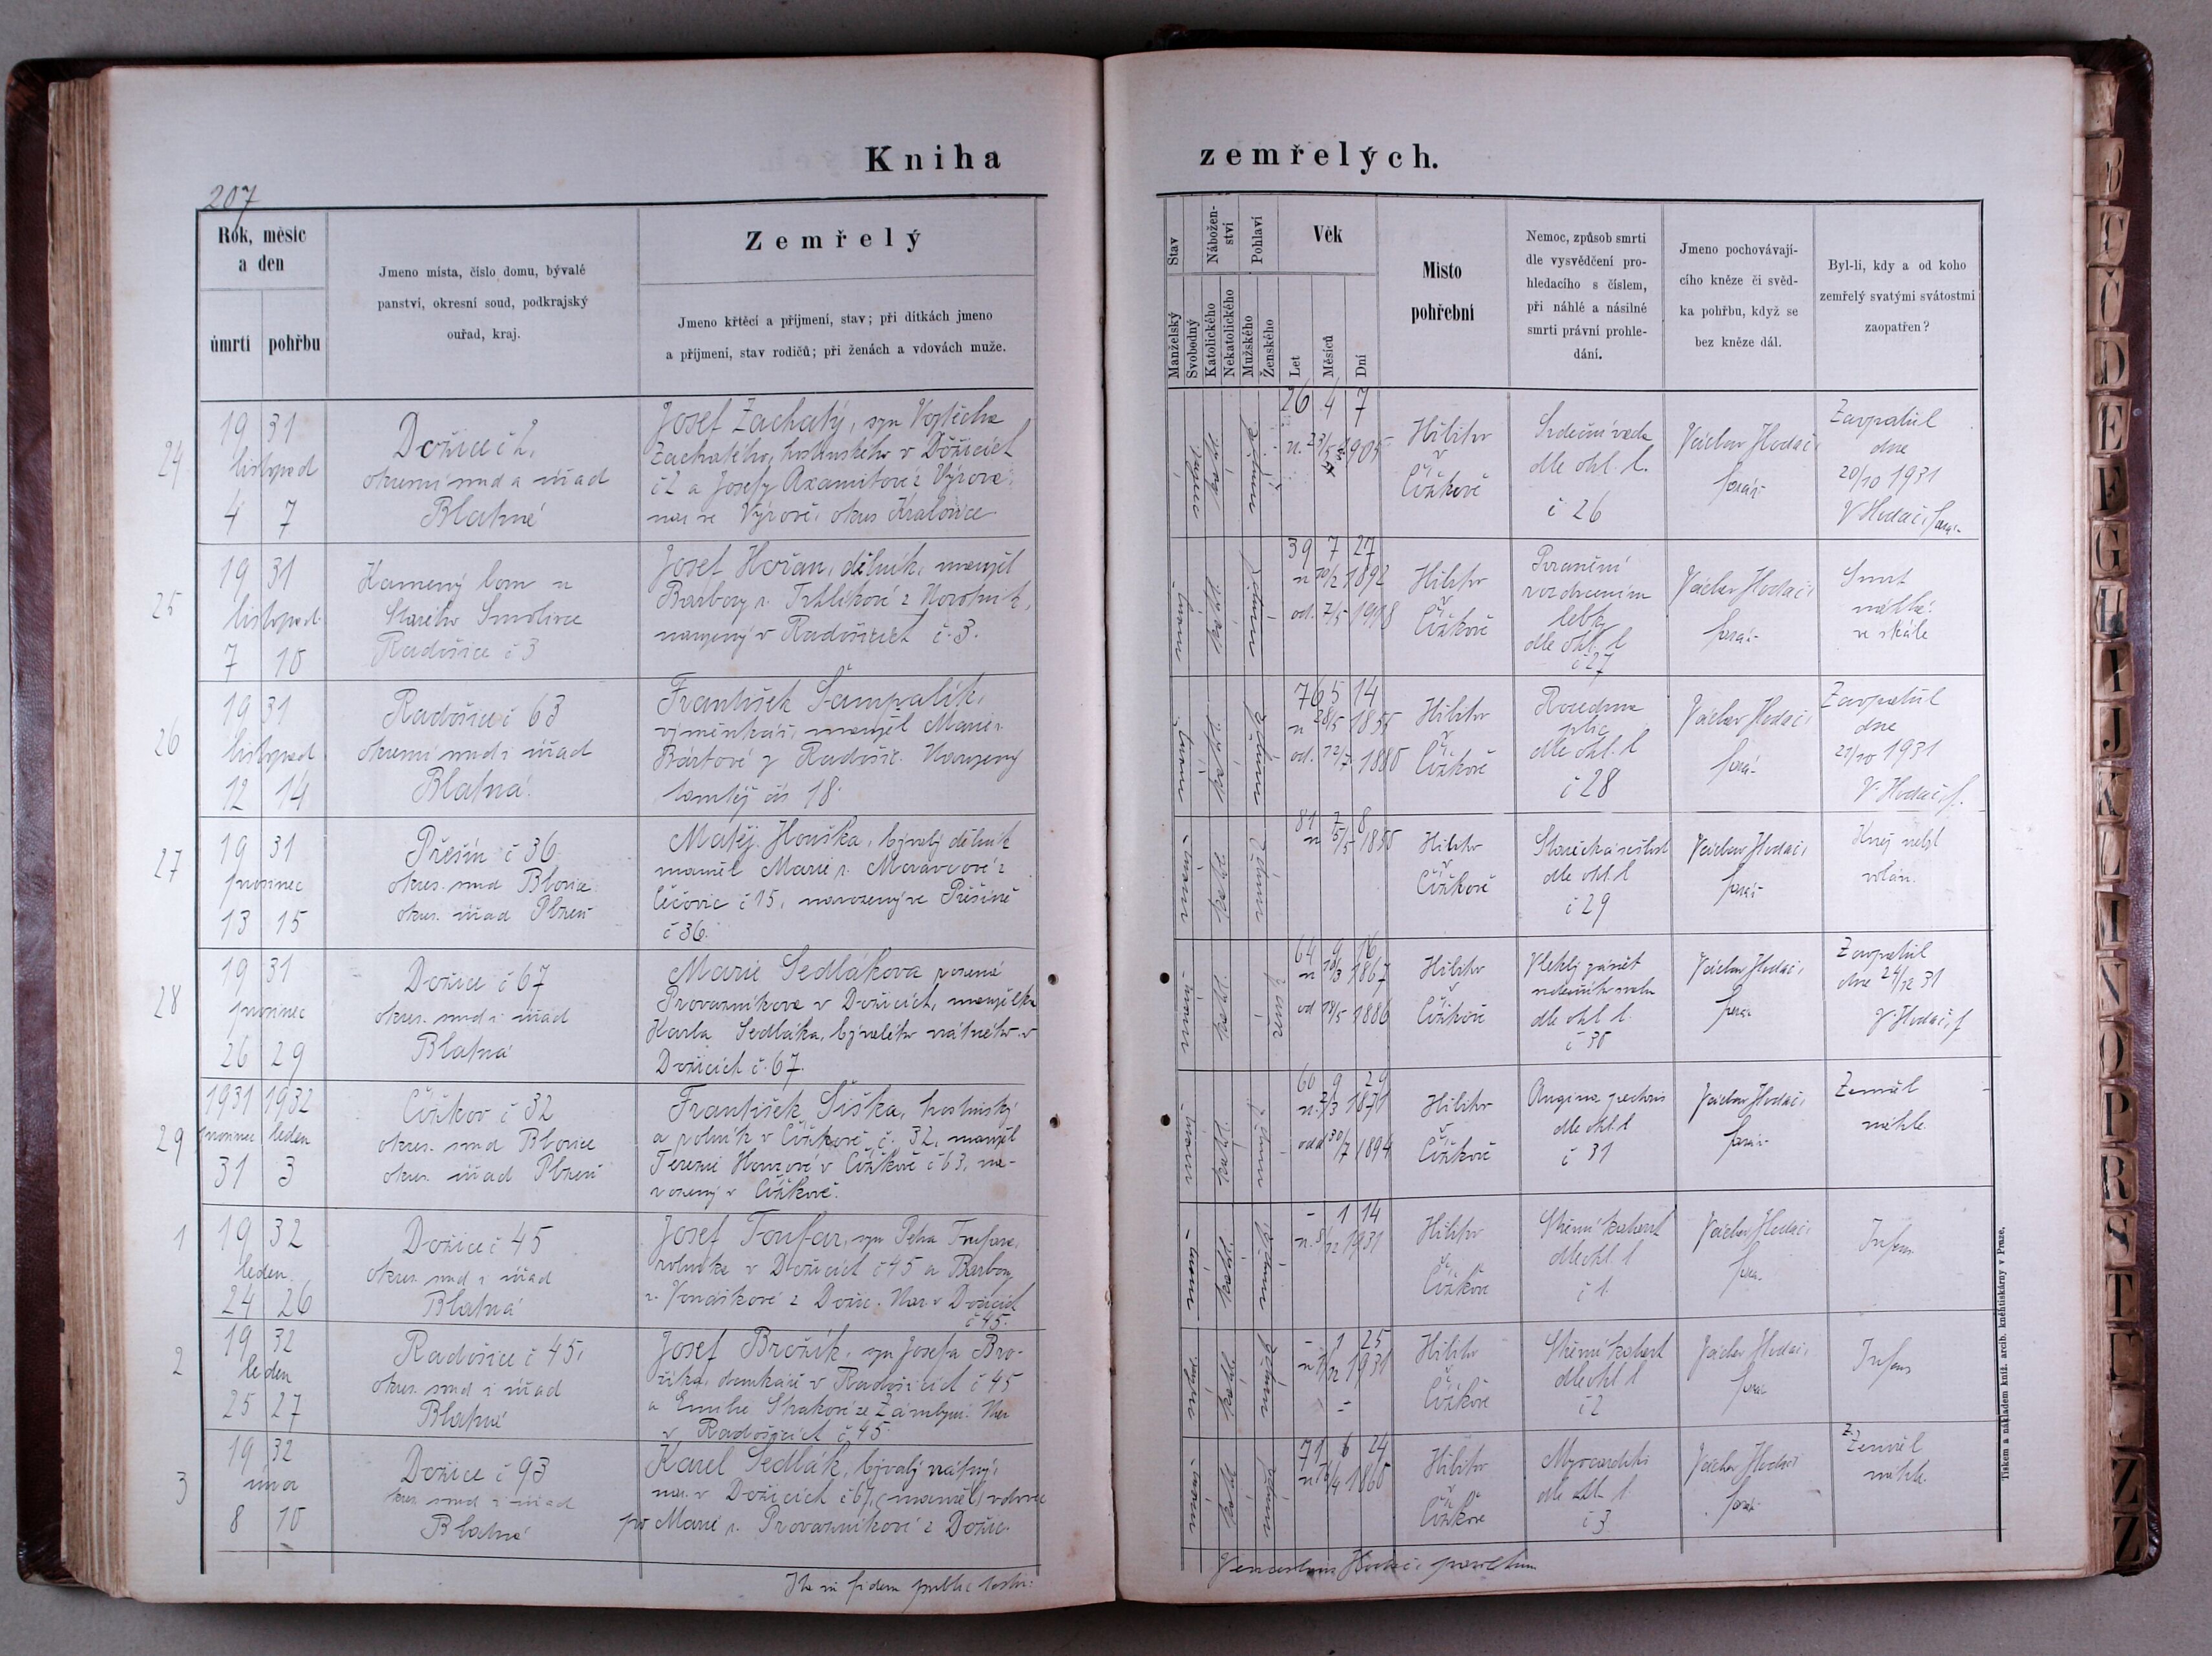 Kniha zemřelých.
207
Rok, měsíc
a den
úmrtí pohřbu
Jmeno místa, číslo domu, bývalé
panství, okresní soud, podkrajský
ouřad, kraj.
Zemřelý
Jmeno křtěcí a příjmení, stav; při dítkách jmeno
a příjmení, stav rodičů; při ženách a vdovách muže.
Stav
Manželský
Svobodný
Nábožen-
ství
Katolického
Nekatolického
Pohlaví
Mužského
Ženského
Věk
Let
Měsíců
Dní
Místo
pohřební
Nemoc, způsob smrti
dle vysvědčení pro-
hledacího s číslem,
při náhlé a násilné
smrti právní prohle-
dání.
Jmeno pochovávají-
cího kněze či svěd-
ka pohřbu, když se
bez kněze dál.
Byl-li, kdy a od koho
zemřelý svatými svátostmi
zaopatřen?
24
19 31
listopad
4 7
Dožice č 2,
okresní soud a úřad
Blatná
Josef Zachatý, syn Vojtěcha
Zachatého, hostinského v Dožicích
č 2 a Josefy Axamitové z Výrova,
nar. ve Výrově, okres Kralovice
26 4 7
Hřbitov
v
Čížkově
Srdeční vada
dle ohl. l.
č 26
Václav Hodač,
farář
Zaopatřil
dne
20/10 1931
V Hodač, farář
25
19 31
listopad
7 10
Kamený lom u
Starého Smolivce
Radošice č 3
Josef Hořan, dělník, manžel
Barbory r.
narozený v Radošicích č. 3.
39 7 27
n 10/2 1892
od. 7/5 1918
Hřbitov
v
Čížkově
Poranění
rozdrcením
lebky
dle ohl. l
č 27
Václav Hodač,
farář
Smrt
náhlá
ve skále
26
19 31
listopad
12 14
Radošice č 63
okresní soud i úřad
Blatná
František Šampalík,
výměnkář, manžel Marie r.
Bártové z Radošic. Narozený
tamtéž čís 18.
76 5 14
n 28/5 1855
od. 12/7 1880
Hřbitov
v
Čížkově
Rozedma
plic
dle ohl. l
č 28
Václav Hodač,
farář
Zaopatřil
dne
21/10 1931
V. Hodač, f.
27
19 31
prosinec
13 15
Přešín č 36
okres. soud Blovice
okres. úřad Plzeň
Matěj Houška, bývalý dělník
manžel Marie r. Moravcové z
Čečovic č 15, narozený ve Přešíně
č 36.
81 7 8
n 5/5 1850
Hřbitov
v
Čížkově
Stařecká sešlost
dle ohl. l
č 29
Václav Hodač,
farář
Kněz nebyl
volán.
28
19 31
prosinec
26 29
Dožice č 67
okres. soud i úřad
Blatná
Marie Sedláková rozená
Provazníková v Dožicích, manželka
Karla Sedláka, bývalého rolného v
Dožicích č. 67.
64 9 16
n 10/3 1867
od 18/5 1886
Hřbitov
v
Čížkově
Vleklý zánět
srdečního svalu
dle ohl l.
č 30
Václav Hodač,
farář
Zaopatřil
dne 24/12 31
V Hodač, f
29
1931 1932
prosinec leden
31 3
Čížkov č 32
okres. soud Blovice
okres. úřad Plzeň
František Šiška, hostinský
a rolník v Čížkově č. 32, manžel
Terezie Honzové v Čížkově č 63, na-
rozený v Čížkově.
60 9 29
n. 2/3 1871
odd 30/7 1894
Hřbitov
v
Čížkově
Angina pectoris
dle ohl. l
č 31
Václav Hodač,
farář
Zemřel
náhle.
1
19 32
leden
24 26
Dožice č 45
okres. soud i úřad
Blatná
Josef Toufar, syn Petra Toufara,
rolníka v Dožicích č 45 a Barbory
r. Jonáškové z Dožic. Nar v Dožicích
č 45.
- 1 14
Hřbitov
v
Čížkově
Střevní katarrh
dle ohl. l
č 1.
Václav Hodač,
farář
Infans
2
19 32
leden
25 27
Radošice č 45,
okres. soud i úřad
Blatná
Josef Brožík, syn Josefa Bro-
žíka, domkáře v Radošicích č 45
a Emilie Strakové ze Zámlyní. Nar
v Radošicích č 45.
- 1 25
Hřbitov
v
Čížkově
Střevní katarh
dle ohl l
č 2
Václav Hodač,
farář
Infans
3
19 32
únor
8 10
Dožice č 93
okres soud i úřad
Blatná
Karel Sedlák, bývalý rolný,
nar. v Dožicích č 67, (manžel) vdovec
po Marii r. Provazníkové z Dožic.
71 6 24
Hřbitov
v
Čížkově
Myocarditis
dle ohl. l
č 3
Václav Hodač
farář
Zemřel
náhle.
Ita in fidem public testor:
Venceslaus Hodač, parochum
Tiskem a nákladem kníž. arcib. kněhtiskárny v Praze.
B C Č D E F G H I J K L M N O P R S T Z